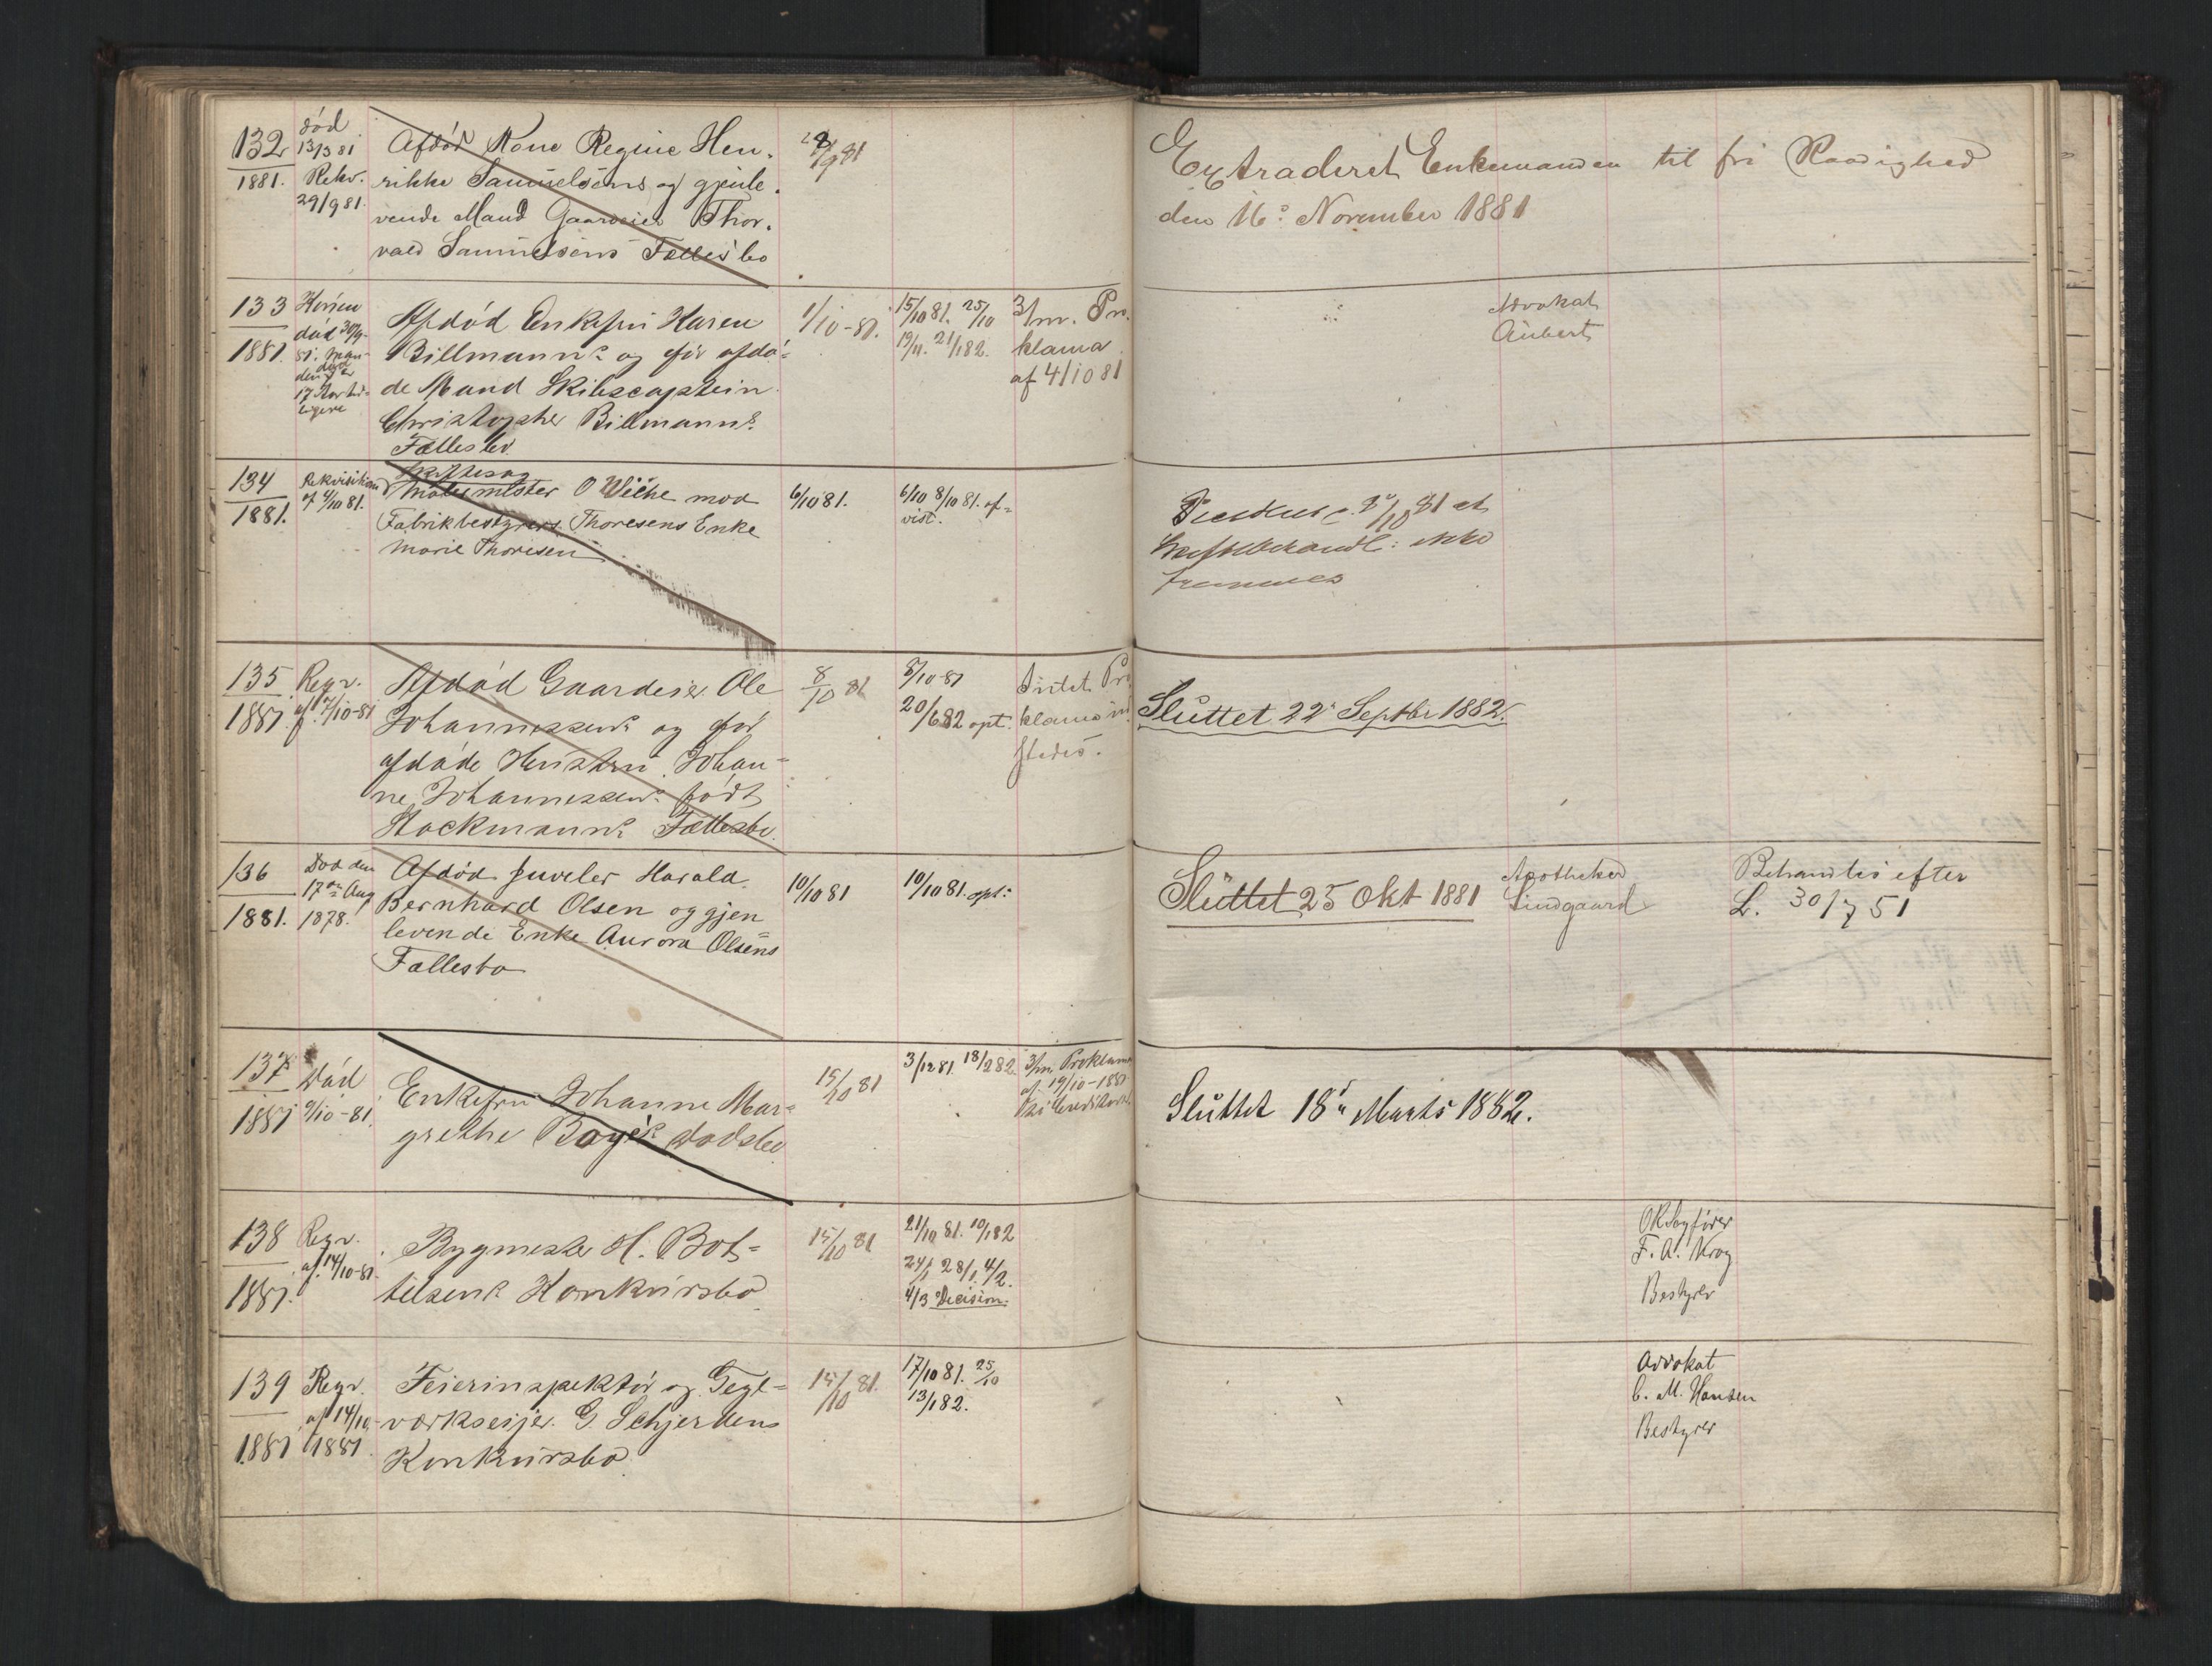 132
1881.
død
13/3 81
Rekv.
29/9 81.
Afdød Kone Regine Hen-
rikke Samuelsens og gjenle-
vende Mand Gaardeier Thor-
vald Samuelsens Fællesbo
/9 81
Extraderet Enkemanden til fri Raadighed
den 16de November 1881
133
1881.
Konen
død 30/9-
81. Man-
den død
17 Aar tid-
ligere
Afdød Enkefru Karen
Billmanns og før afdø-
de Mand Skibscaptein
Christopher Billmanns
Fællesbo
1/10-81.
15/10 81. 25/10
19/11. 21/1 82.
3/m. Pro-
klama
af 4/10 81
Advokat
Aubert
134
1881.
Rekvisition
af 4/10 81.
Skiftesag
Malermester O Wiche mod
Fabrikbestyrers Thoresens Enke
Marie Thoresen
6/10 81.
6/10 8/10 81. af-
vist.
/10 81 at
Skiftebehandl: ikke
fremmes
135
1881.
Reqv.
af 7/10-81
Afdød Gaardeier Ole
Johannessens og før
afdøde Hustru Johan-
ne Johannessens født
Stockmanns Fællesbo.
8/10 81
8/10-81
20/6 82 opt.
Intet Pro
klama ud
stedes.
Sluttet 22de Septbr 1882.
136
1881.
Død den
17de Aug
1878.
Afdød Juveler Harald
Bernhard Olsen og gjen
levende Enke Aurora Olsens
Fællesbo
10/10 81
10/10 81. opt:
Sluttet 25 Okt 1881
Apotheker
Lindgaard
Behandles efter
L. 30/7 51
137
1881
Død
9/10-81.
Enkefru Johanne Mar-
grethe Boyes Dødsbo
15/10 81
3/12 81 18/2 82
3/m. Proklama
af 19/10-1881
Sluttet 18de Marts 1882.
138
1881.
Reqv.
af 14/10-81.
Bygmester H. Bot-
telsens Konkursbo
15/10 81
21/10 81. 10/1 82
24/1 28/1. 4/2.
4/3 Decision.
ORSagfører
F. A. Krog
Bestyrer
139
1881
Reqv.
af 14/10
1881.
Feierinspektør og Tegl-
værkseier G. Schjerdens
Konkursbo.
15/10 81.
17/10 81. 25/10
13/1 82.
Advokat
C. M. Hansen
Bestyrer